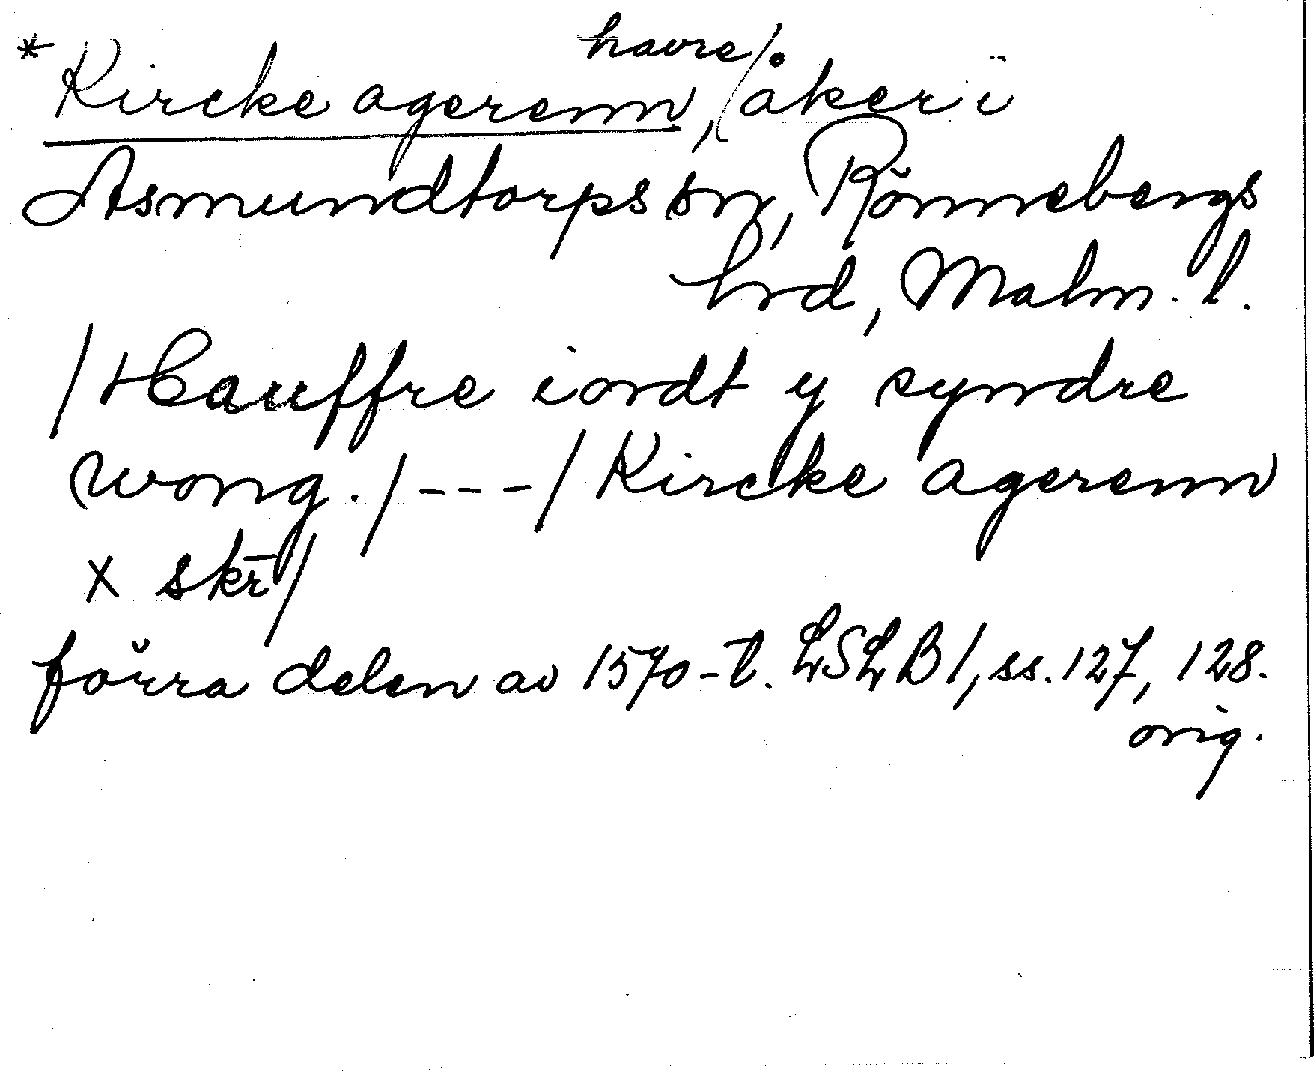 *Kircke agerenn, havre/åker i
Asmundtorps sn, Rönnebergs
hrd, Malm. l.
/Hauffre iordt y syndre
wong./---/Kircke agerenn
x skr̄/
förra delen av 1570-t. LSLB 1, ss. 127, 128.
orig.